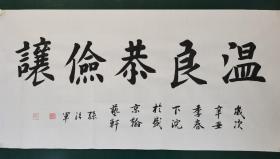 温良恭儉讓
歲次
辛丑
季春
下浣
於盛
京翰
藝軒
孫法軍